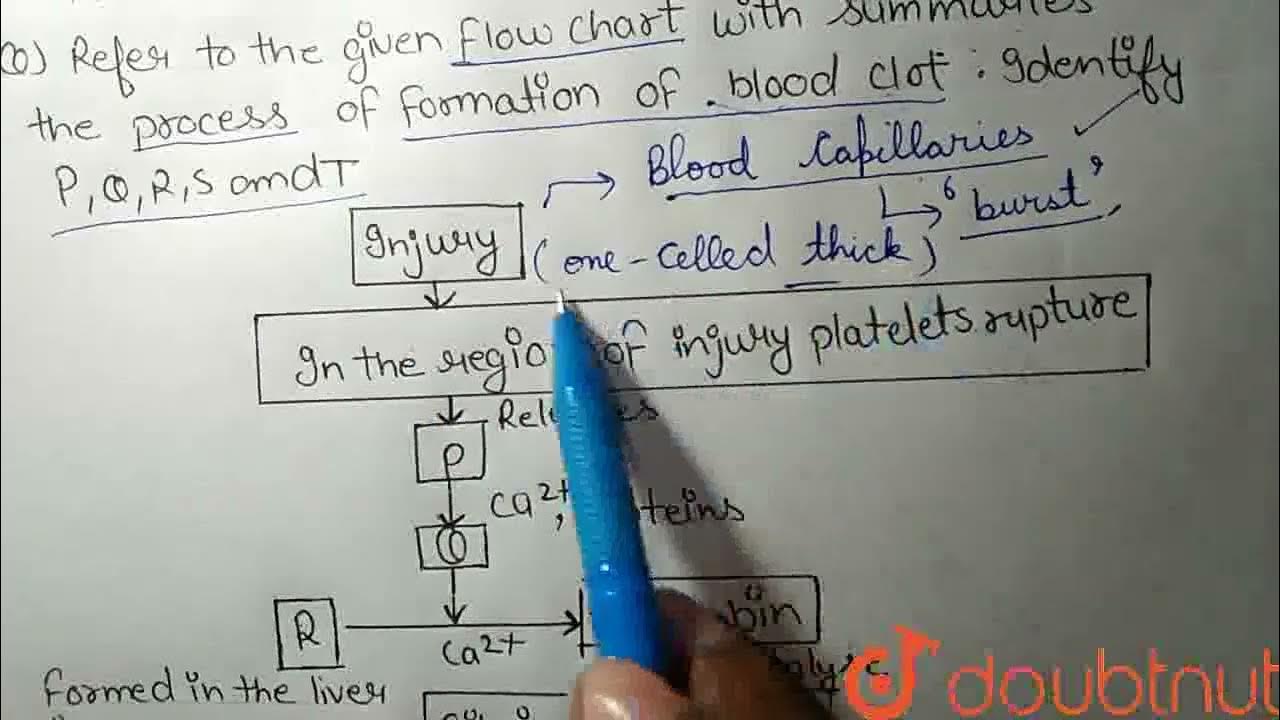 Q) Refer to the given flow chart with summaries
the process of formation of blood clot : Identify
P, Q, R, S and T
Blood Capillaries
"burst",
Injury
(one-celled thick)
In the region of injury platelets rupture
P
Ca2+,
Q
R
Ca2+
Formed in the liver
doubtnut